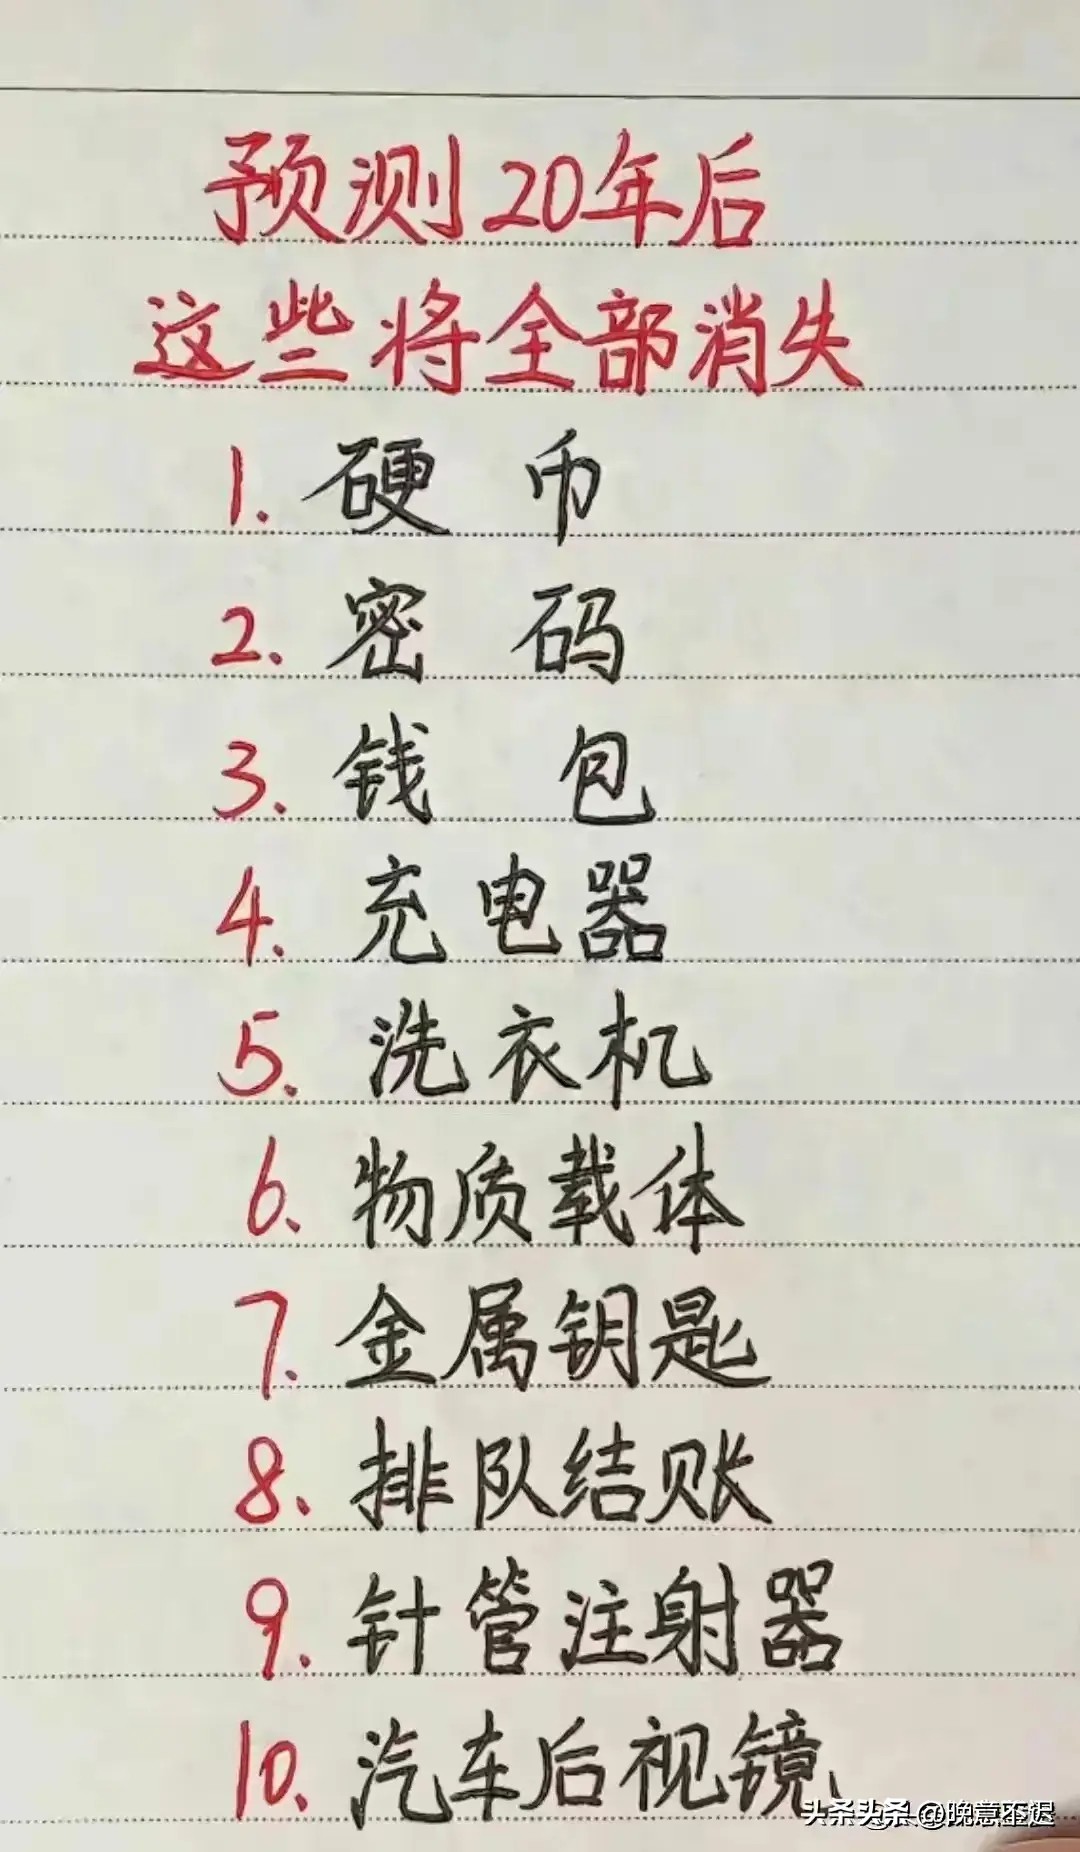 预测20年后
这些将全部消失
1. 硬币
2. 密码
3. 钱包
4. 充电器
5. 洗衣机
6. 物质载体
7. 金属钥匙
8. 排队结账
9. 针管注射器
10. 汽车后视镜
头条头条 @晚意不迟